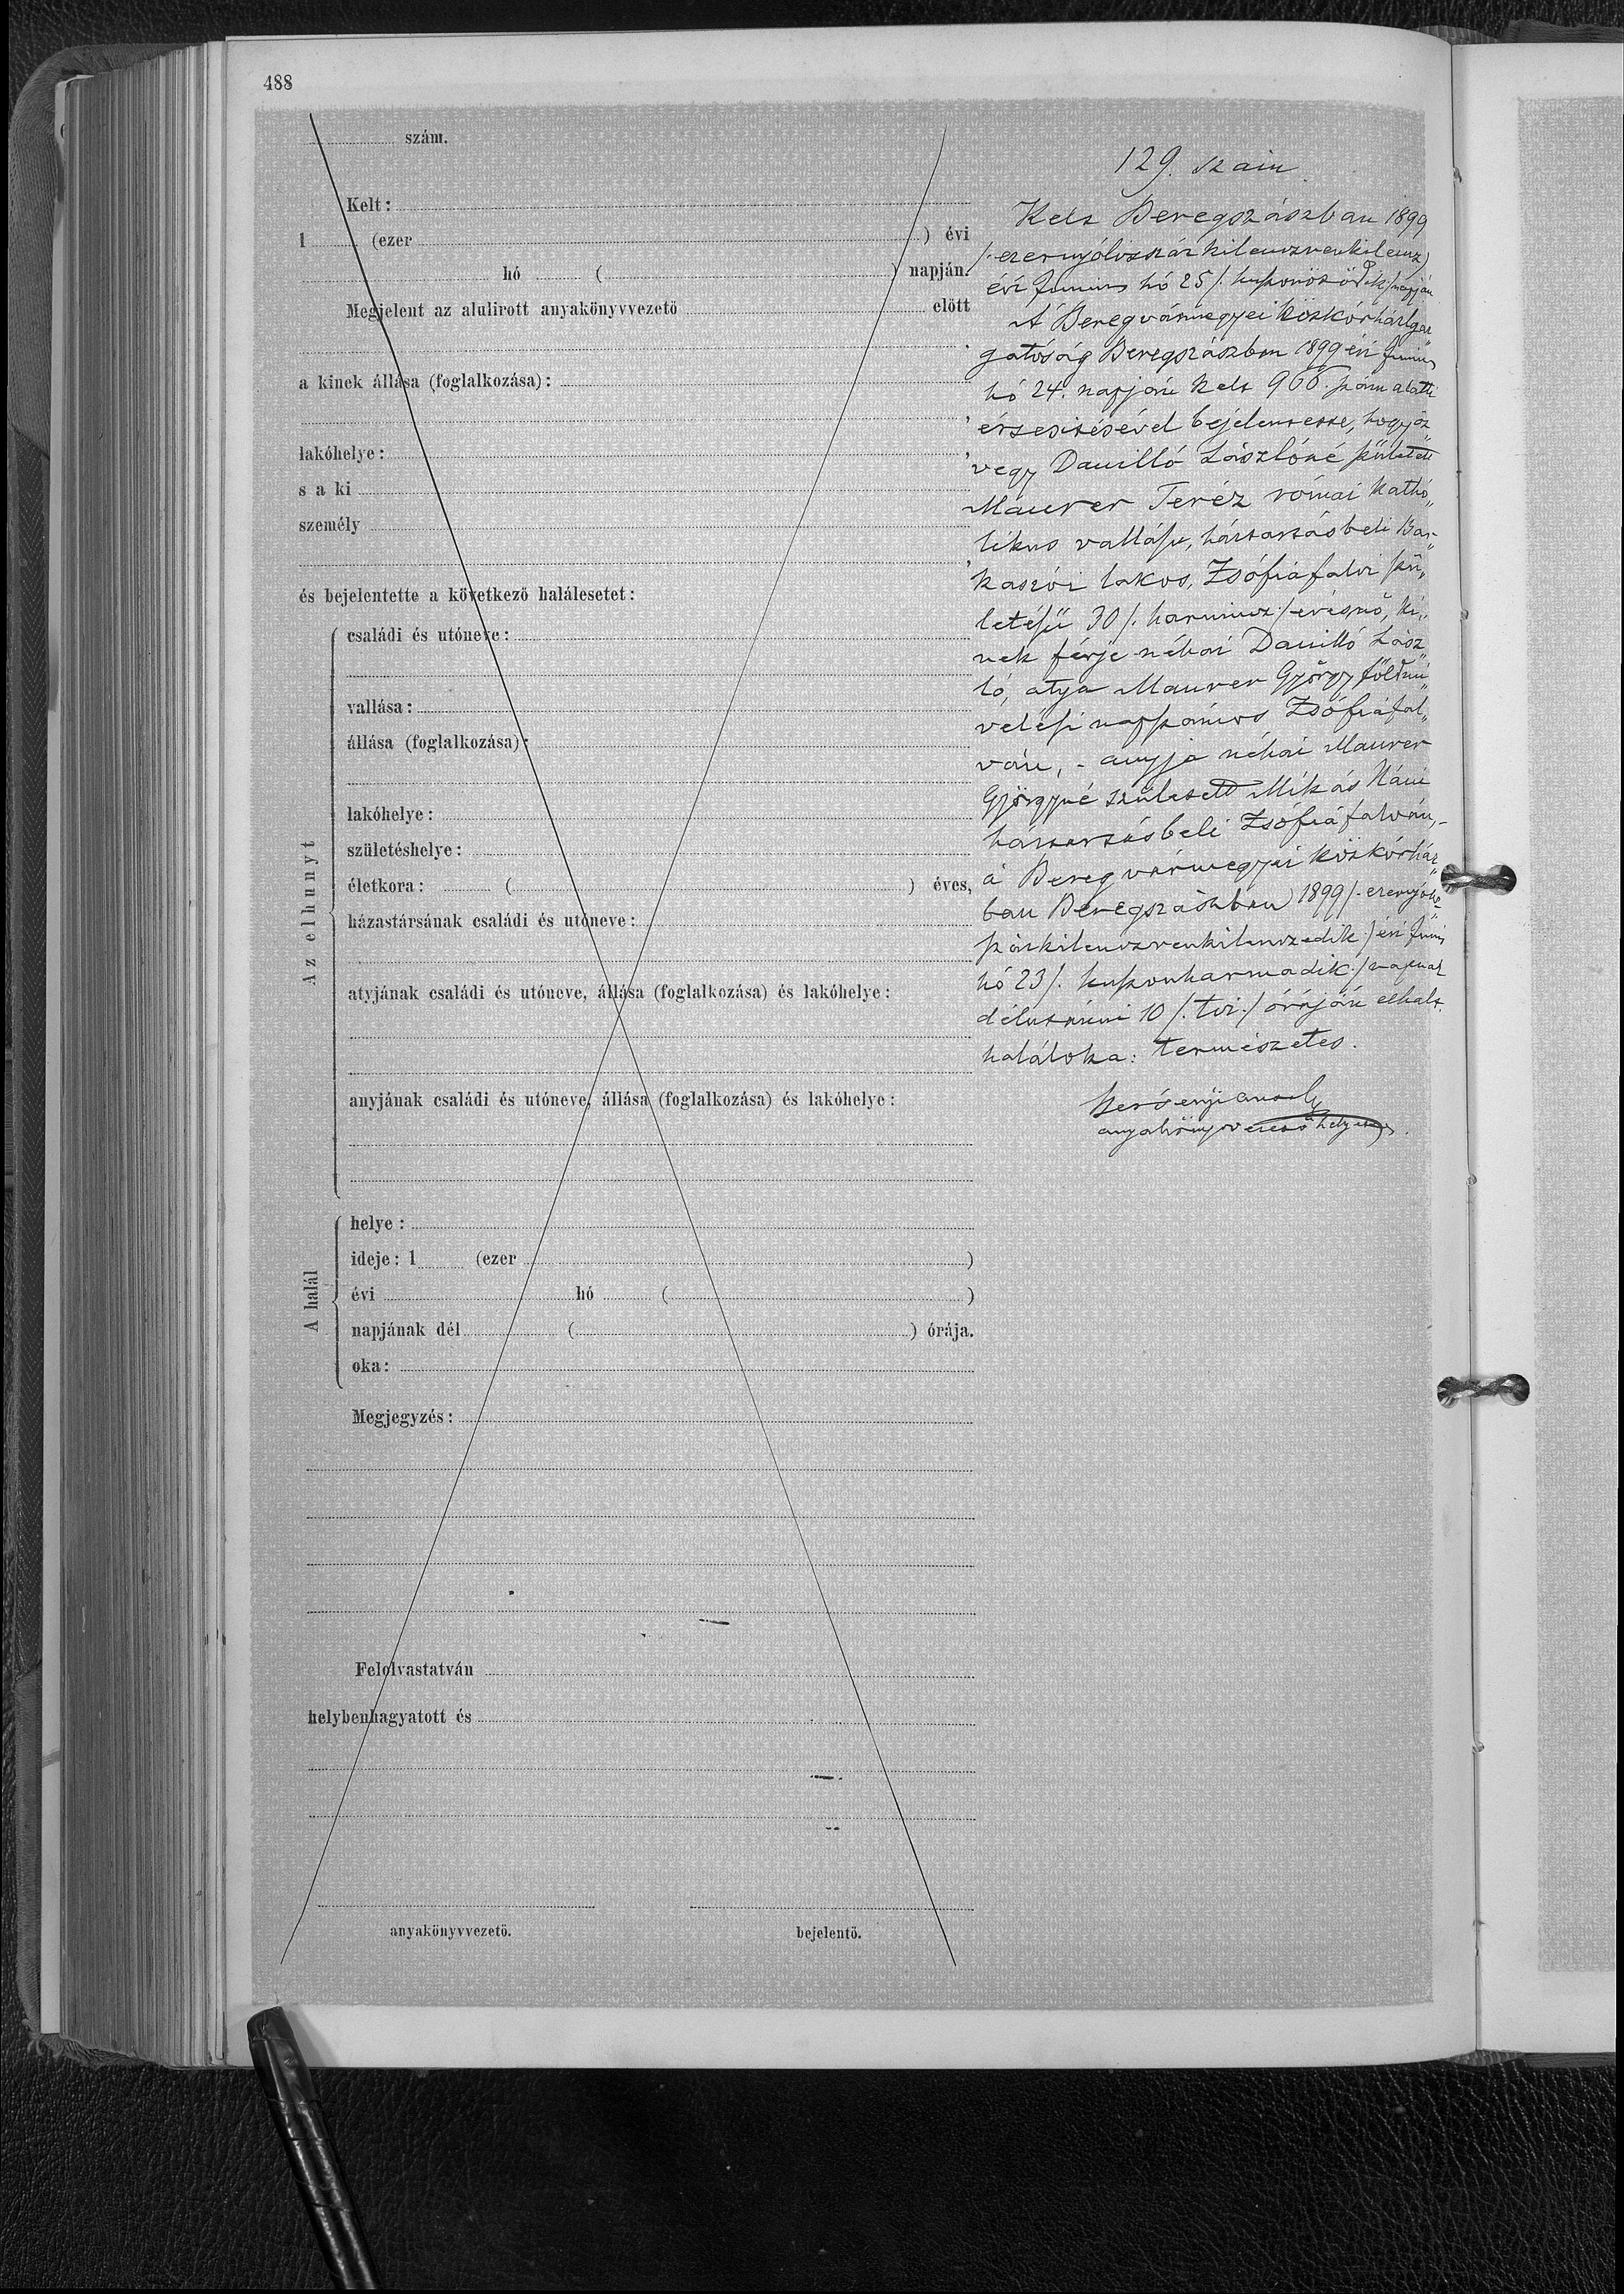 488
szám.
Kelt:
1 (ezer ) évi
hó ( ) napján.
Megjelent az alulirott anyakönyvvezető előtt
a kinek állása (foglalkozása):
lakóhelye:
s a ki
személy
és bejelentette a következő halálesetet:
Az elhunyt
családi és utóneve:
vallása:
állása (foglalkozása):
lakóhelye:
születéshelye:
életkora: ( ) éves,
házastársának családi és utóneve:
atyjának családi és utóneve, állása (foglalkozása) és lakóhelye:
anyjának családi és utóneve, állása (foglalkozása) és lakóhelye:
A halál
helye:
ideje: 1 (ezer )
évi hó ( )
napjának dél ( ) órája.
oka:
Megjegyzés:
Felolvastatván
helybenhagyatott és
anyakönyvvezető.
bejelentő.
129. szám
Kelt Beregszászban 1899
/.ezernyólczszáz kilenczvenkilencz)
évi Junius hó 25 /. huszonötödik /napján
A Beregvármegyei Közkórház Igaz„
gatóság Beregszászban 1899 évi Junius
hó 24. napján kelt 966. szám alatti
értesitésével bejelentette, hogy öz„
vegy Daniló Lászlóné született
Maurer Teréz római kathó„
likus vallásu, háztartásbeli Bar„
kaszói lakos, Zsófiafalvi szü„
letésü 30 /. harmincz / éves nő, ki„
nek férje néhai Daniló Lász„
ló, atya Maurer György földmü„
velési napszámos Zsófiafal„
ván, - anyja néhai Maurer
Györgyné született Mikás Náni
háztartásbeli Zsófiafalván,-
a Beregvármegyei Közkórház„
ban Beregszászban 1899 /- ezernyólcz„
százkilenczvenkilenczedik / évi Junius
hó 23 /. huszonharmadik / napjának
délutáni 10 /. tiz / óráján elhalt.
haláloka: természetes.
anyakönyvvezető helyettes.